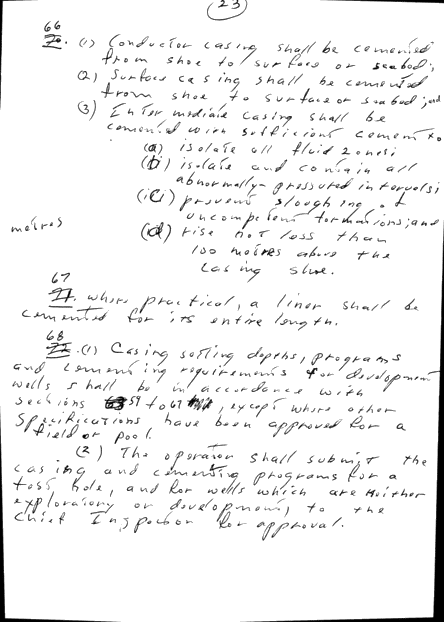 23
66
(1) Conductor casing shall be cemented
from shoe to surface or seabed;
(2) Surface casing shall be cemented
from shoe to surface or seabed; and
(3) Intermediate casing shall be
cemented with sufficient cement to
(a) isolate all fluid zones;
(b) isolate and contain all
abnormally-pressured intervals;
(c) prevent sloughing of
uncompetent formations; and
metres
(d) rise not less than
100 metres above the
casing shoe.
67
where practical, a liner shall be
cemented for its entire length.
68
(1) Casing setting depths, programs
and cementing requirements for development
wells shall be in accordance with
sections 59 to 67, except where other
specifications have been approved for a
field or pool.
(2) The operator shall submit the
casing and cementing programs for a
test hole, and for wells which are neither
exploratory or development, to the
Chief Inspector for approval.